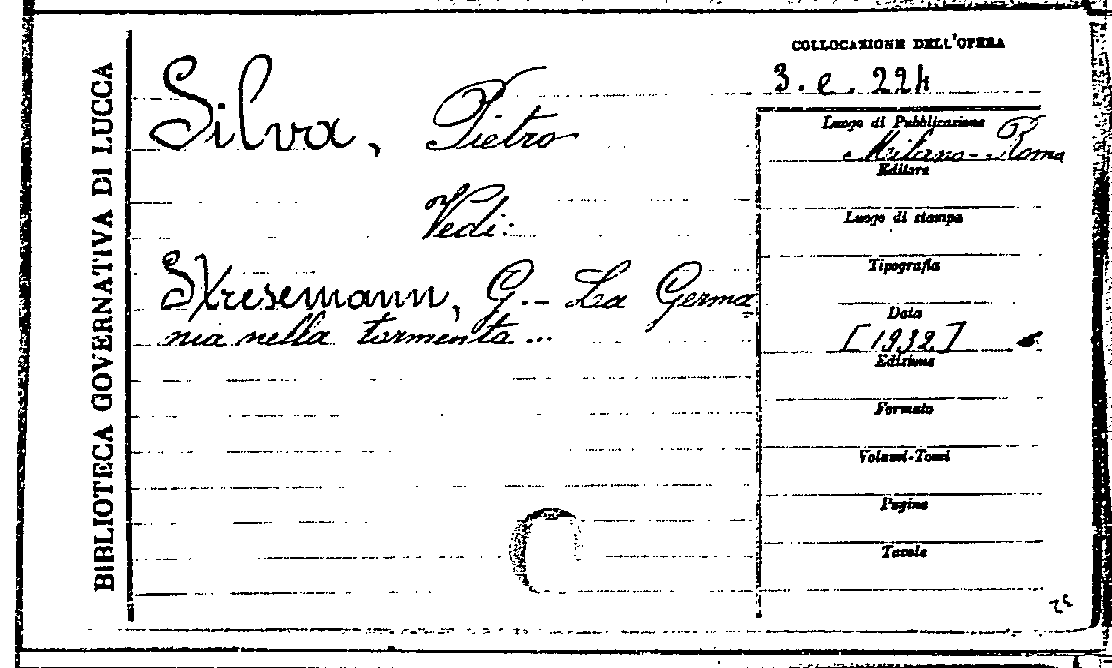 BIBLIOTECA GOVERNATIVA DI LUCCA
COLLOCAZIONE DELL'OPERA
3. e. 224
Silva, Pietro
Vedi:
Stresemann, G.- La Germa
nia nella tormenta...
Luogo di Pubblicazione
Milano-Roma
Editore
Luogo di stampa
Tipografia
Data
[1932]
Edizione
Formato
Volumi-Tomi
Pagine
Tavole